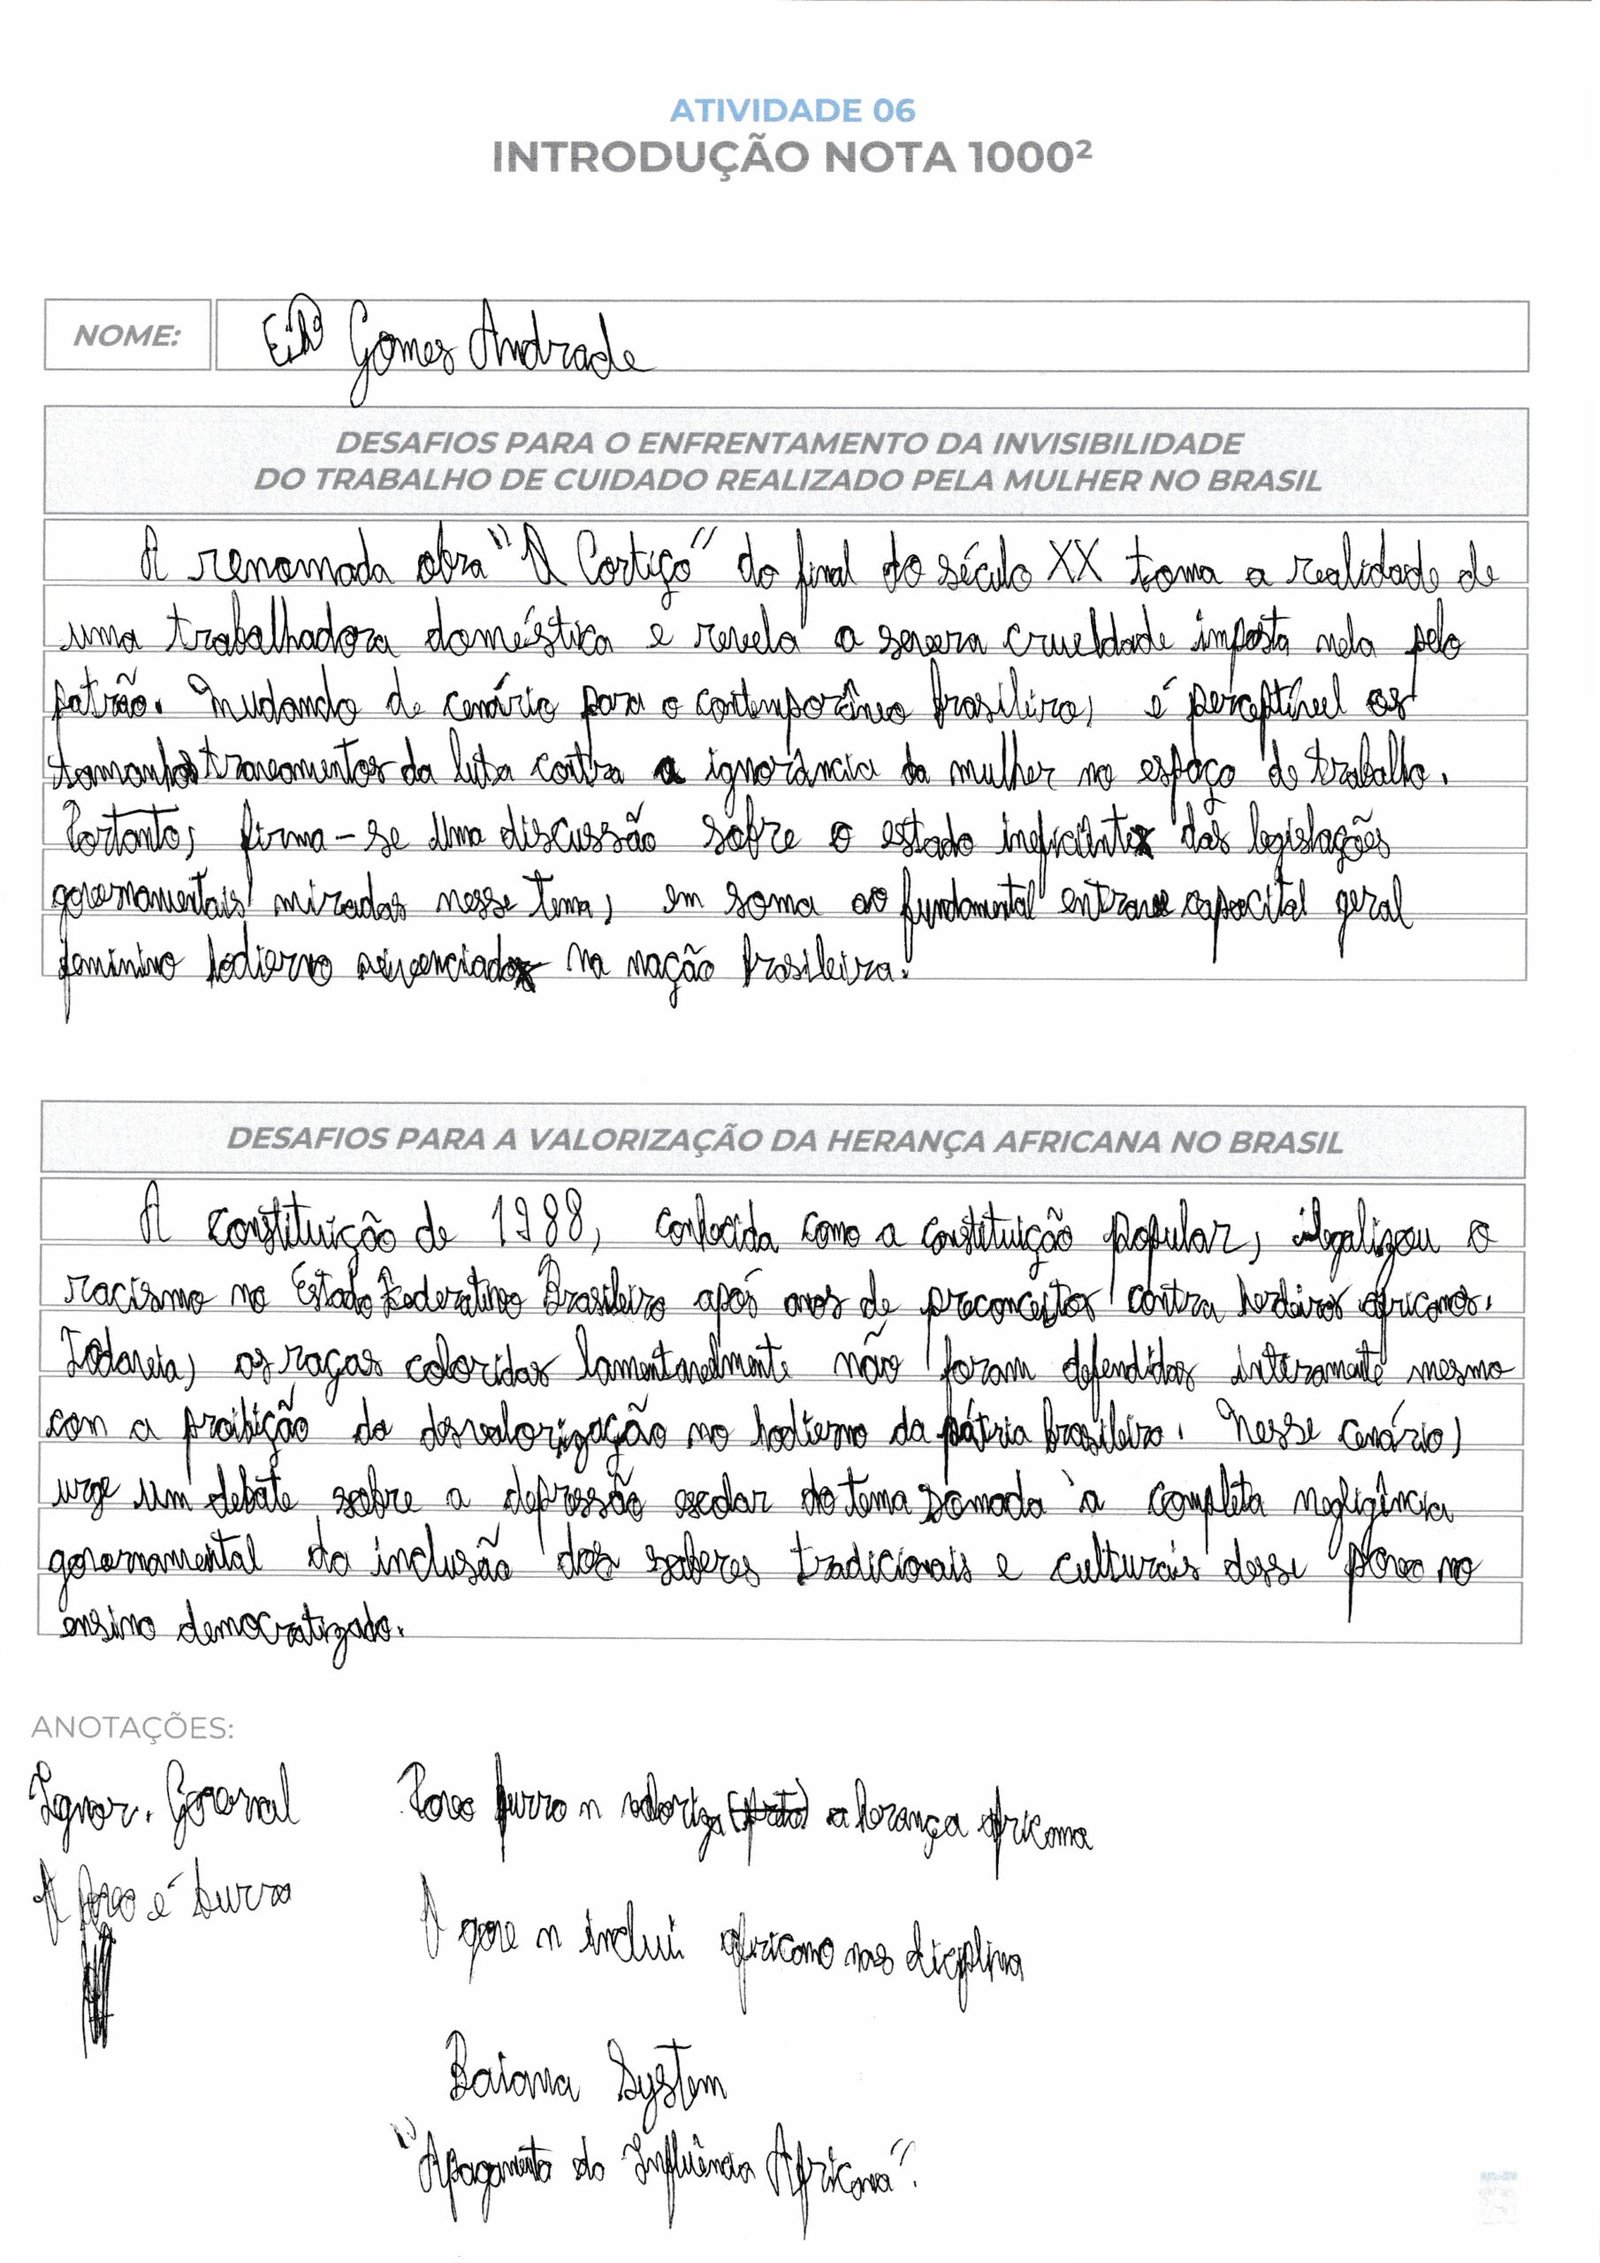 ATIVIDADE 06
INTRODUÇÃO NOTA 1000²
NOME: Gomes Andrade
DESAFIOS PARA O ENFRENTAMENTO DA INVISIBILIDADE
DO TRABALHO DE CUIDADO REALIZADO PELA MULHER NO BRASIL
A renomada obra "O Cortiço" do final do século XX toma a realidade de
uma trabalhadora doméstica e revela a severa crueldade imposta nela pelo
patrão. Mudando de cenário para o contemporâneo brasileiro, é perceptível os
tamanhos travamentos da luta contra a ignorância da mulher no espaço de trabalho.
Portanto, firma-se uma discussão sobre o estado ineficiente das legislações
governamentais miradas nesse tema, em soma ao fundamental entrave geral
feminino hodierno na nação brasileira.
DESAFIOS PARA A VALORIZAÇÃO DA HERANÇA AFRICANA NO BRASIL
A constituição de 1988, conhecida como a constituição popular, ilegalizou o
racismo no Estado Federativo Brasileiro após anos de preconceitos contra herdeiros africanos.
Todavia, as raças coloridas lamentavelmente não foram defendidas inteiramente mesmo
com a proibição da desvalorização no hodierno da pátria brasileira. Nesse cenário,
urge um debate sobre a depressão escolar do tema somada à completa negligência
governamental da inclusão dos saberes tradicionais e culturais desse povo no
ensino democratizado.
ANOTAÇÕES:
Ignor. Governal
Povo burro n valoriza (preto) a herança africana
A povo é burro
O gove n inclui africano nas diciplina
Baiana System
"Apagamento da Influência Africana".